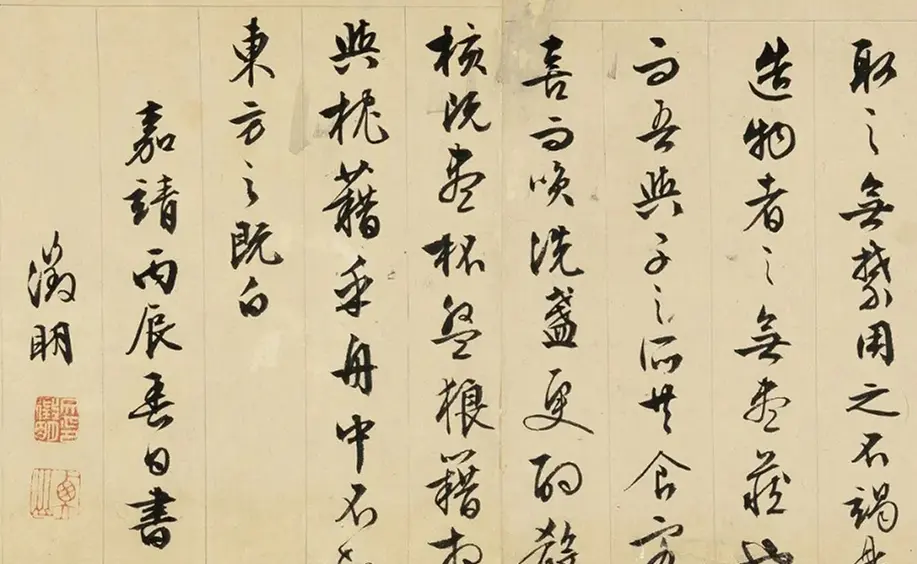 取之無禁用之不竭是
造物者之無盡藏也
而吾與子之所共食客
喜而咲洗盞更酌殽
核既盡杯盤狼籍相
與枕藉乎舟中不知
東方之既白
嘉靖丙辰春日書
徵明